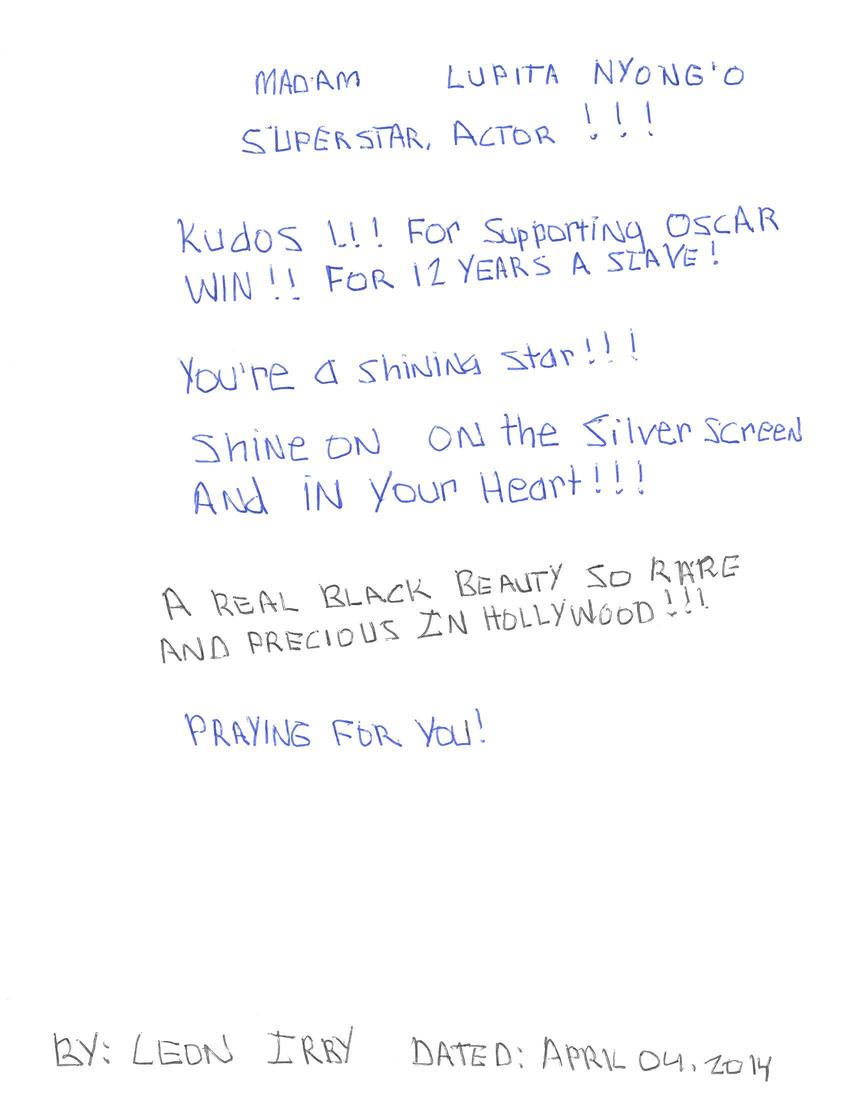 MADAM LUPITA NYONG'O
SUPERSTAR, ACTOR !!!
Kudos !!! For Supporting OSCAR
WIN!! FOR 12 YEARS A SLAVE!
You're a shining star!!!
Shine ON ON the Silver Screen
And iN Your Heart!!!
A REAL BLACK BEAUTY SO RARE
AND PRECIOUS IN HOLLYWOOD!!!
PRAYING FOR YOU!
BY: LEON IRBY DATED: APRIL 04, 2014